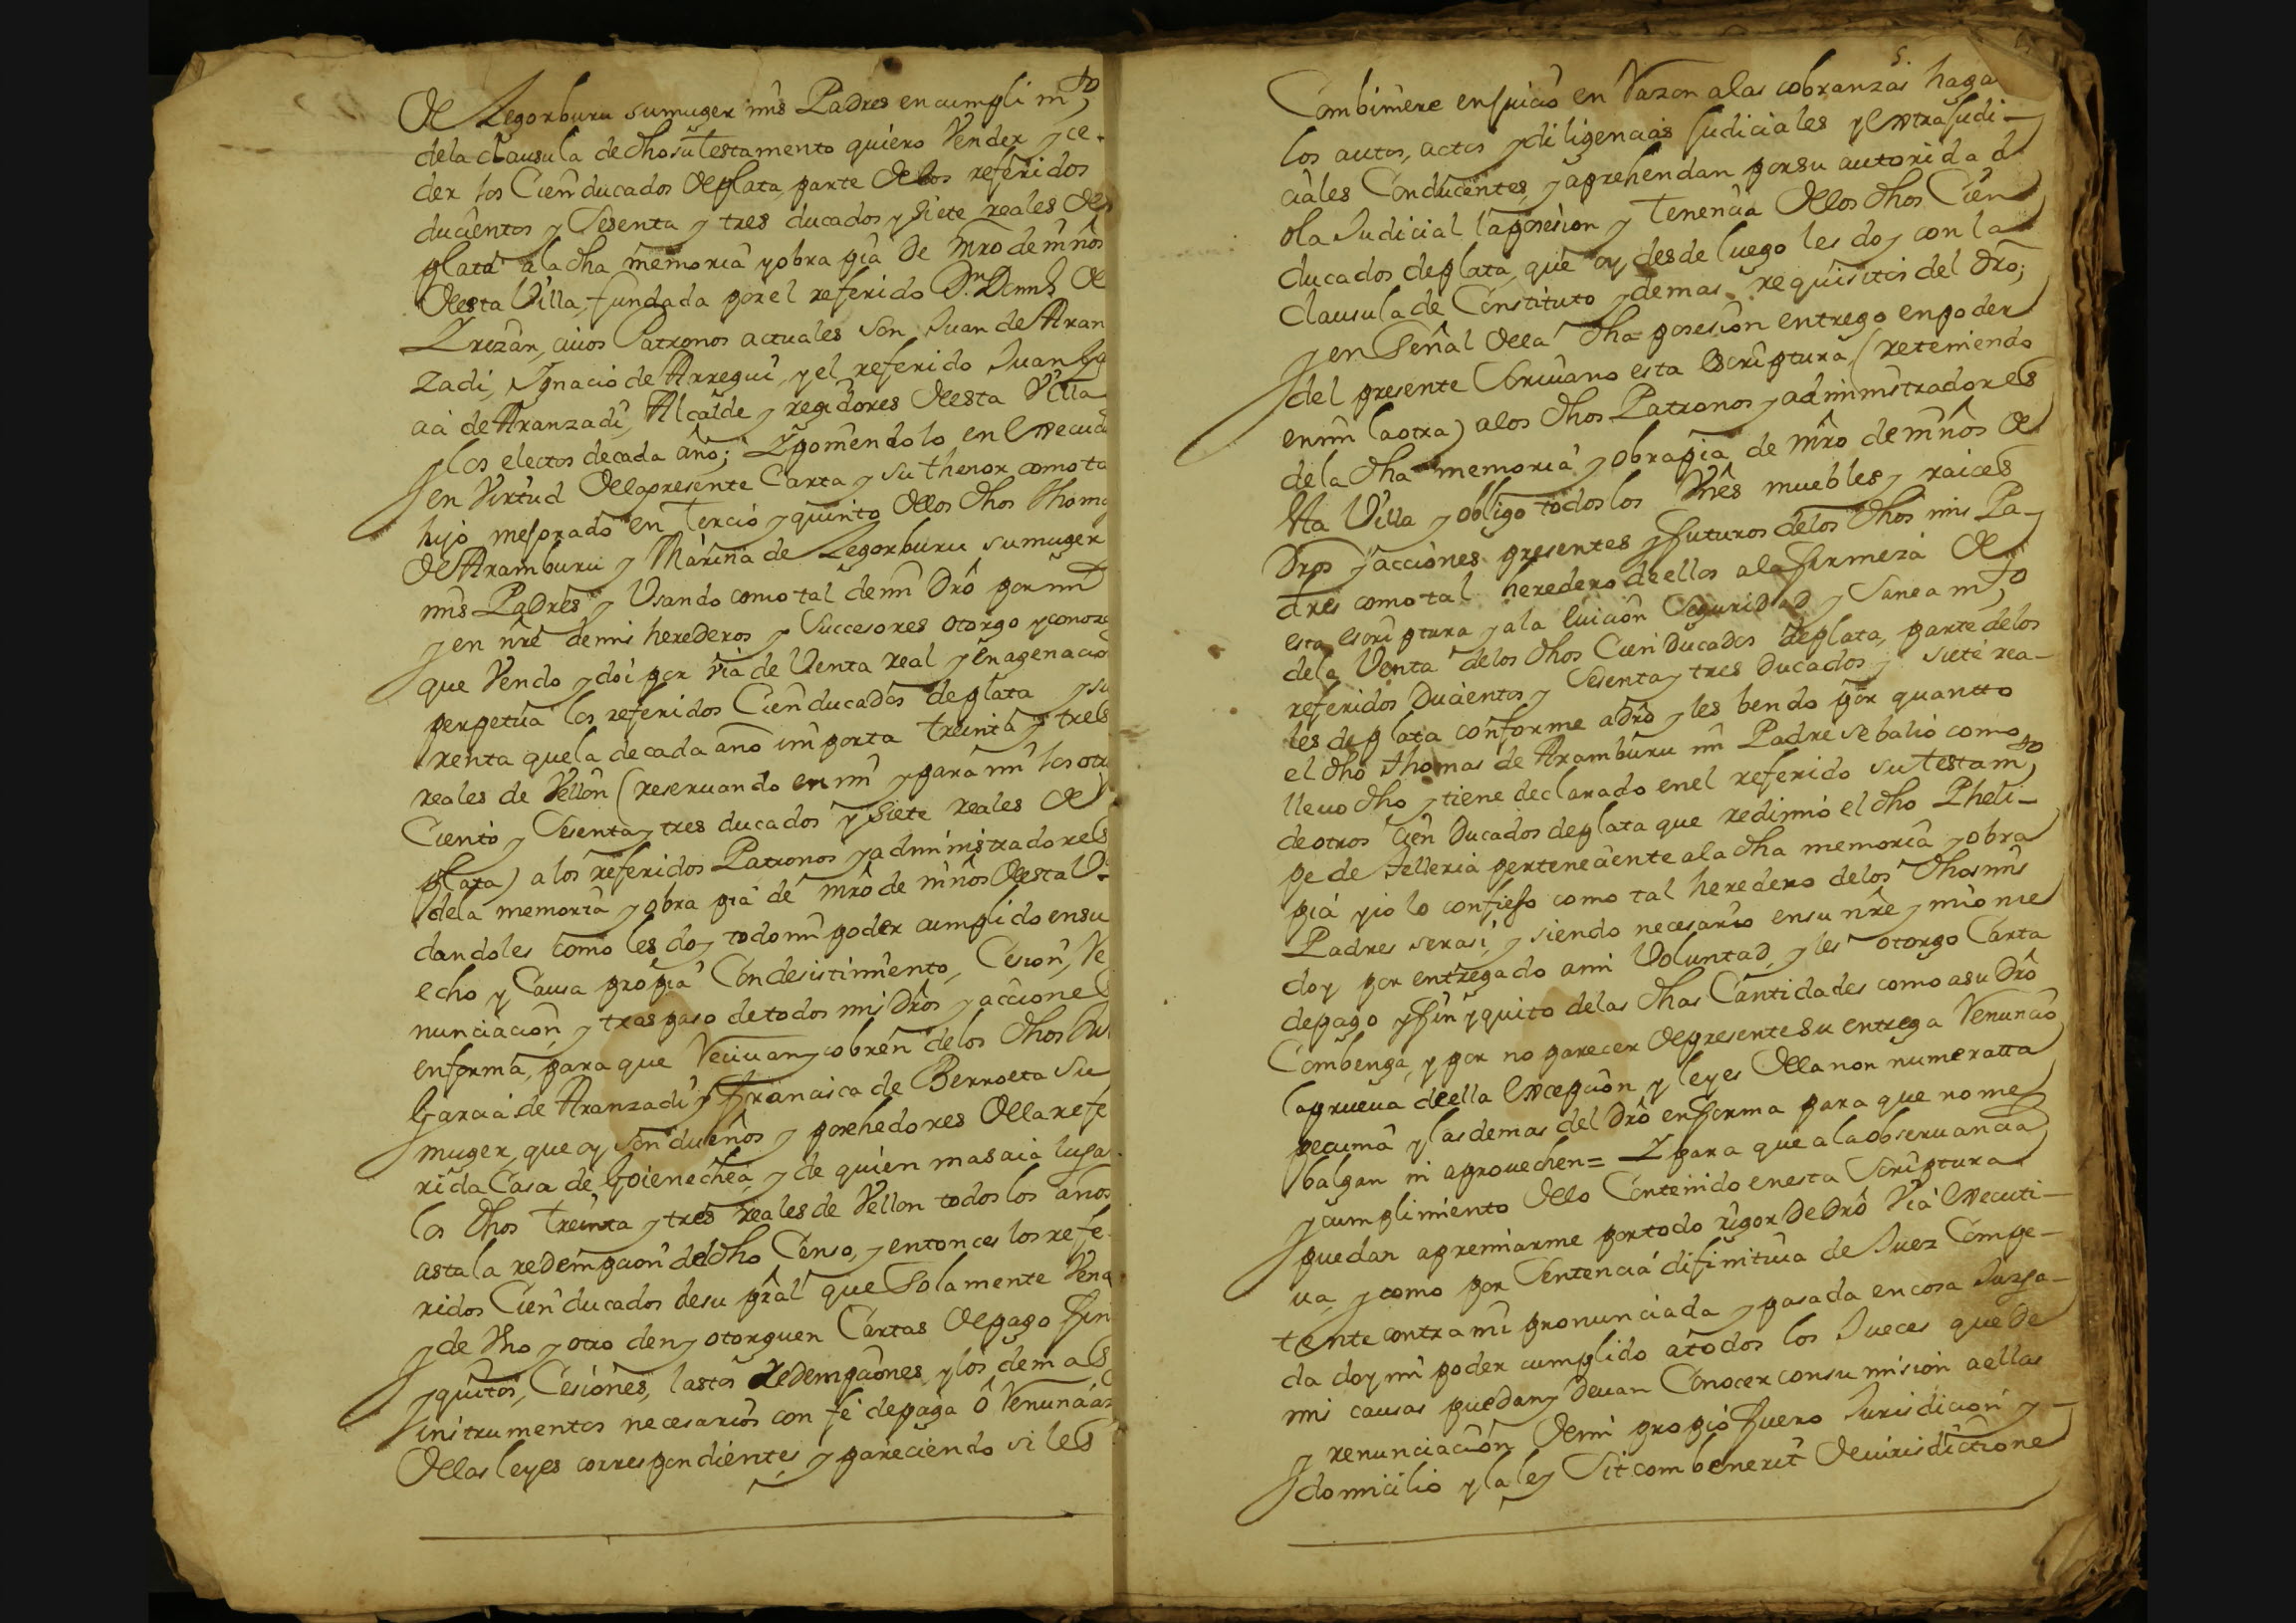 de Legorburu su muger mis Padres en cumplim.to
dela clausula de dho su testamento quiero Vender y ce-
der los Cien ducados de plata, parte de los referidos
ducientos y Sesenta y tres ducados y siete reales de
plata a la dha memoria y obra pia de mro de niños
desta Villa, fundada por el referido D.n Domi.o de
Yrizar, cuios Patronos actuales son Juan de Aran
zadi, Ygnacio de Arregui, y el referido Juan Gar
cia de Aranzadi, Alcalde y regidores desta Villa
y los electos de cada año; Y poniendolo en execuci
y en Virtud de la presente Carta y su thenor, como ta
hijo mejorado en tercio y quinto de los dhos Thoma
de Aramburu y Marina de Legorburu su muger
mis Padres y Usando como tal de mi dro por mi
y en nre de mis herederos y Succesores otorgo y conozc
que Vendo y doi por via de Venta real y enagenacio
perpetua los referidos Cien ducados de plata y su
renta que la de cada año importa treinta y tres
reales de Vellon (reseruando en mi y para mi los otr
Ciento y Sesenta y tres ducados y siete reales de
plata) a los referidos Patronos y administradores
dela memoria y obra pia de mro de niños desta V.a
dandoles como les doy todo mi poder cumplido en su
echo y Causa propia Con desistimiento, Cesion, Re
nunciacion y traspaso de todos mis dros y acciones
en forma, para que Reciuan y cobren de los dhos Ju
Garcia de Aranzadi y francisca de Berroeta su
muger, que oy son dueños y posehedores de la refe
rida Casa de Goienechea, y de quien mas aia lugar
los dhos treinta y tres reales de Vellon todos los años
asta la redempcion del dho Censo, y entonces los refe
ridos Cien ducados de su pral que Solamente Vend
y de Uno y otro den y otorguen Cartas de pago fin
y quitos, Cesiones, lastos redempciones y los demas
instrumentos necesarios con fe de paga o Renuncia
de las leyes correspondientes y pareciendo si les
5.
Combiniere en juicio en Razon a las cobranzas haga
los autos, actos y diligencias Judiciales y extra Judi-
ciales Conducentes, y aprehendan por su autoridad
o la Judicial la posesion y tenencia de los dhos Cien
ducados de plata, que oy desde luego les doy con la
clausula de Constituto y demas requisitos del dro;
y en Señal de la dha posesion entrego en poder
del presente Scriuano esta escriptura (reteniendo
en mi la otra) a los dhos Patronos y administradores
dela dha memoria y obra pia de mro de niños de
sta Villa y obligo todos los Vnes muebles y raices
dros y acciones presentes y futuros de los dhos mis Pa-
dres como tal heredero de ellos a la firmeza de
esta escriptura y a la euicion Seguridad y Saneam.to
dela Venta de los dhos Cien Ducados de plata, parte de los
referidos Ducientos y Sesenta y tres Ducados y siete rea-
les de plata conforme a dro y les bendo por quantto
el dho Thomas de Aramburu mi Padre se balio como
lleuo dho y tiene declarado en el referido su testam.to
de otros Cien Ducados de plata que redimio el dho Pheli-
pe de Telleria perteneciente a la dha memoria y obra
pia y io lo confieso como tal heredero de los dhos mis
Padres ser asi, y siendo necesario en su nre y mio me
doy por entregado a mi Voluntad, y les otorgo Carta
de pago y fin y quito de las dhas Cantidades como a su dro
Combenga, y por no parecer de presente su entrega Renuncio
la prueua de ella excepcion y leyes de la non numeratta
pecunia y las demas del dro en forma para que no me
balgan ni aprouechen = Y para que a la obseruancia
y cumplimiento de lo Contenido en esta Scriptura
puedan apremiarme por todo rigor de dro Via executi-
ua, y como por Sentencia difinitiua de Juez Compe-
tente contra mi pronunciada y pasada en cosa Juzga-
da doy mi poder cumplido a todos los Jueces que de
mis causas puedan y deuan Conocer con sumision a ellas
y renunciacion de mi propio fuero Jurisdicion y -
domicilio y la ley Sit combenerit de iurisdictione